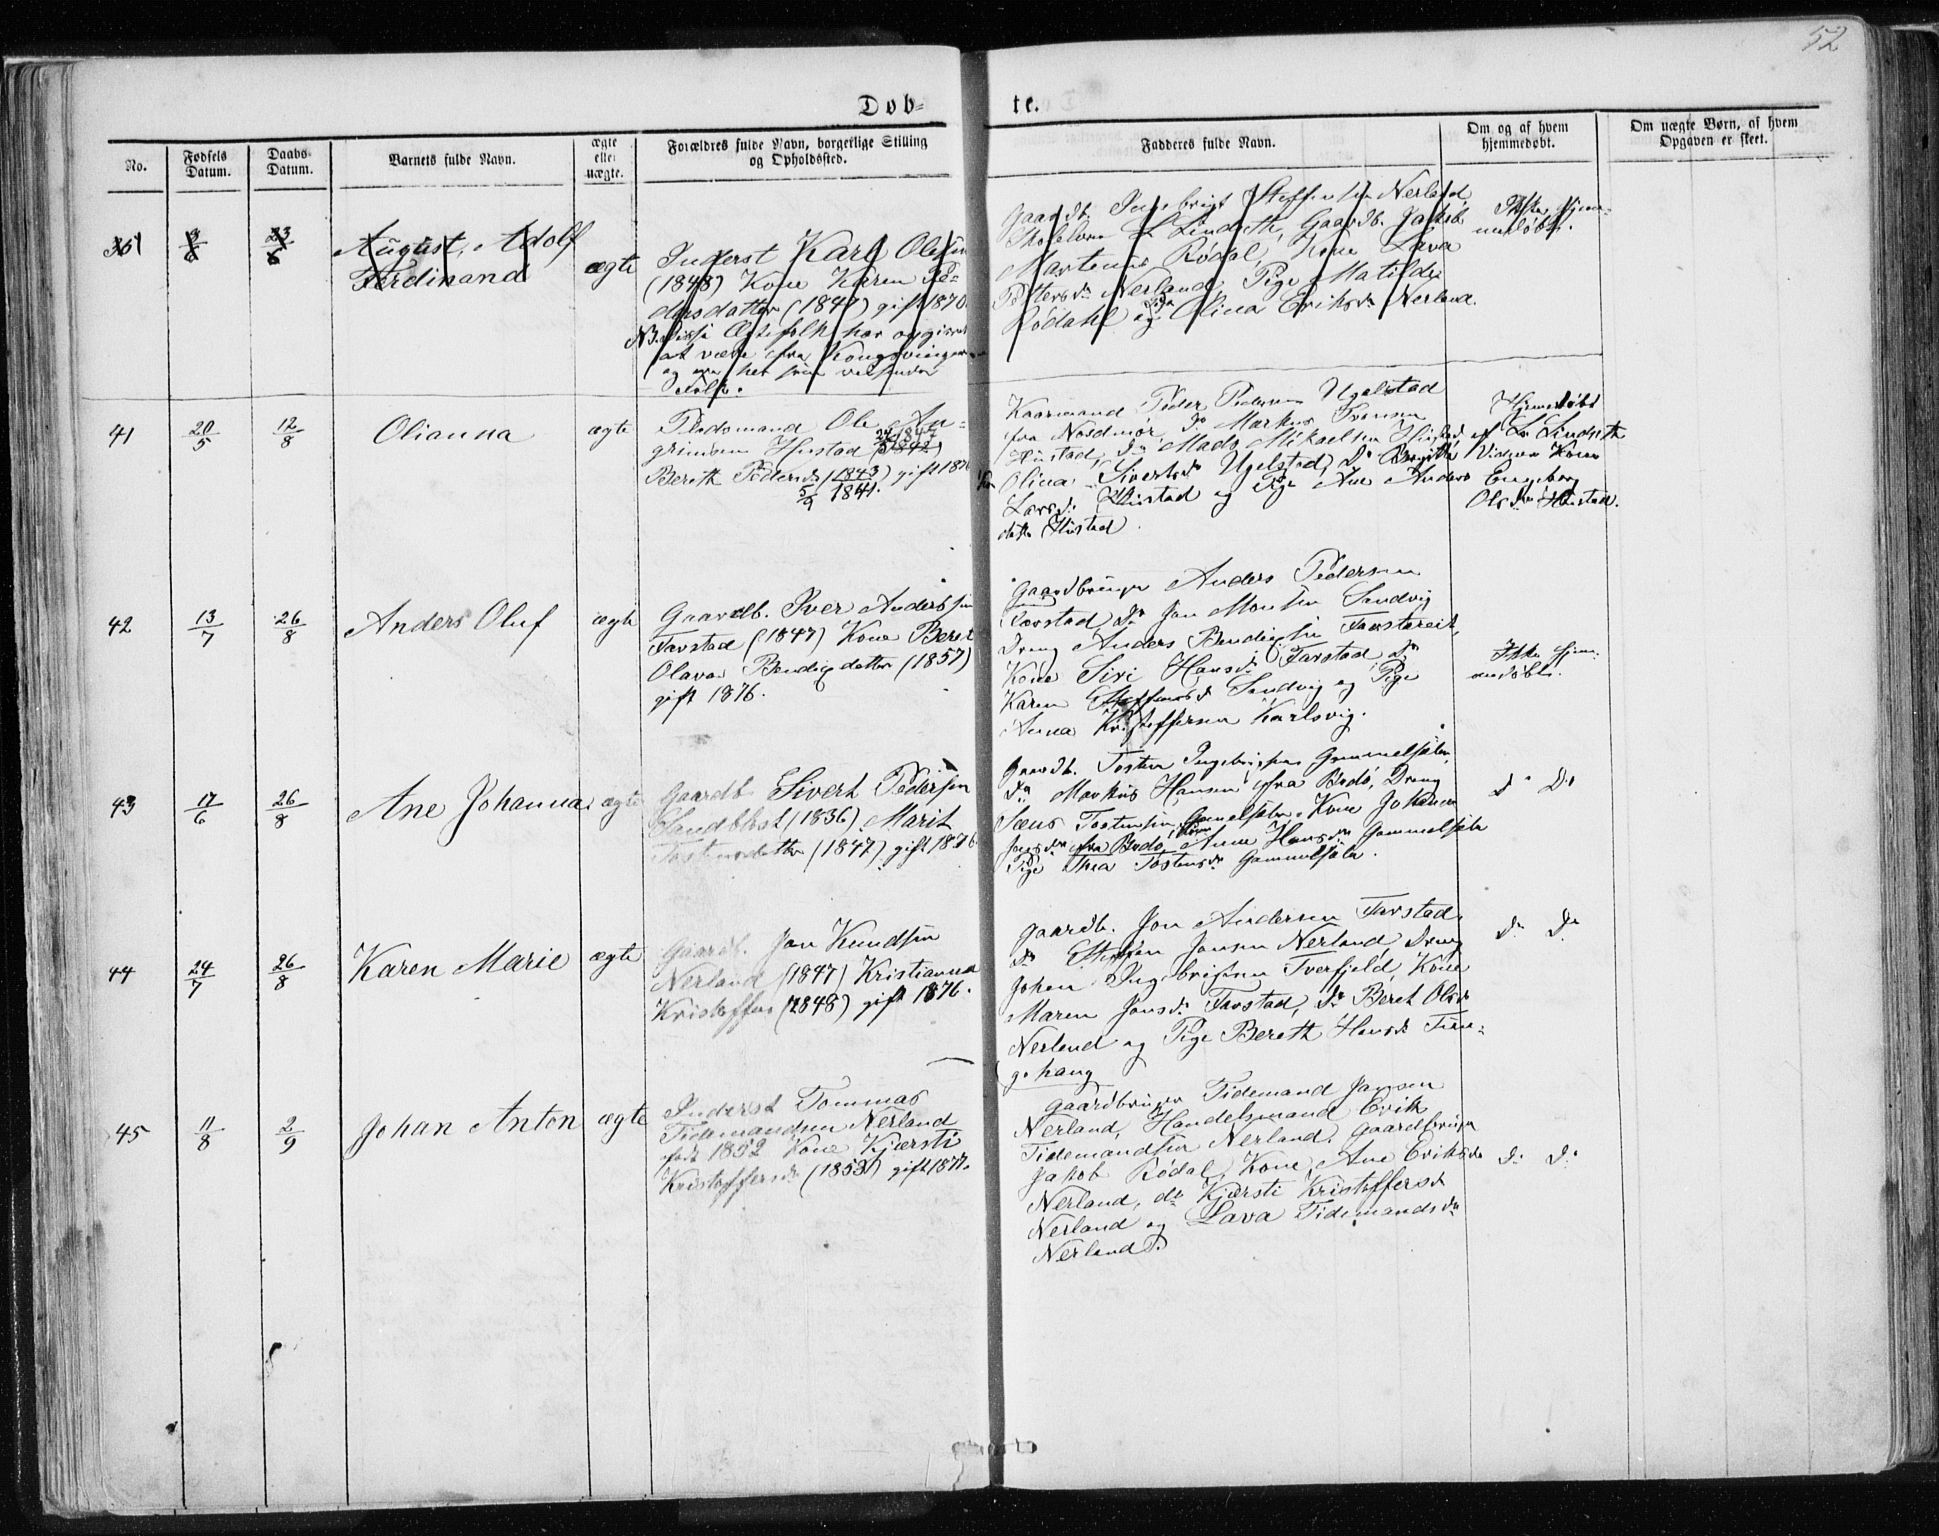 52
Døb-
te.
No.
Fødsels Datum.
Daabs Datum.
Barnets fulde Navn.
ægte eller uægte.
Forældres fulde Navn, borgerlige Stilling og Opholdssted.
Fadderes fulde Navn.
Om og af hvem hjemmedøbt.
Om uægte Børn, af hvem Opgaven er skeet.
August, Adolf
Ferdinand
ægte
Inderst Karl Olesen
(1848) Kone Karen Pe-
dersdatter (1847) gift 1870
NB. disse Ægtefolk har opgivet
at være fra Kongsvinger
og er her som reisende
Folk.
Gaardb. Ingebrigt Steffensen Nerland
L Lindseth, Gaardb. Jakob
Martenus Rødal, Kone Lava
Pettersdr Nerland, Pige Matilde
Rødahl og Olina Eriksdr Nerland.
Ikke hjem-
medøbt.
41
20/5
12/8
Olianna
ægte
Pladsmand Ole An-
grimsen Hustad
Bereth Pedersdr (1843) gift 18
5/9 1841.
Kaarmand Peder Pedersen Ugelstad
fra Nordmør, do Markus Iversen
Hustad, do Mads Mikaelsen Hustad
Olina Sivertsdr Ugelstad, do Bereth
Larsdr Hustad og Pige Ane Anders
datter Hustad.
Hjemmedøbt
af L. Lindseth
Vidner Kone
Engeborg
Olsdr Hustad.
42
13/7
26/8
Anders Oluf
ægte
Gaardb. Iver Anderssen
Tavstad (1847) Kone Beret
Olava Bendigsdatter (1857)
gift 1876.
Gaardbruger Anders Pedersen
Tavstad, do Jon Monsen Sandvig
Dreng Anders Bendigsen Tavstareit,
Kone Siri Hansdr Tavstad do
Karen Steffensdr Sandvig og Pige
Anna Kristoffersen Karlsvig.
Ikke hjem-
medøbt.
43
17/6
26/8
Ane Johanna
ægte
Gaardb. Sivert Pedersen
Sandblost (1836) Marit
Tostensdatter (1847) gift 1876
Gaardb. Tosten Ingebrigtsen Gammelsæter,
do Markus Hansen fra Bodø, Dreng
Jens Tostensen Gamelsæter, Kone Johanna
Jensdr fra Bodø, Kone Anne Hansdr Gammelsæter
Pige Thea Tostensdr Gammelsæter.
do do
44
24/7
26/8
Karen Marie
ægte
Gaardb. Jon Knudsen
Nerland (1847) Kristianna
Kristoffers (1848) gift 1876.
Gaardb. Jon Andersen Tavstad,
do Steffen Jonsen Nerland, Dreng
Johan Ingebrigtsen Tverfjeld, Kone
Maren Jonsdr Tavstad, do Beret Olsdr
Nerland og Pige Bereth Hansdr Tun-
gehaug
do do
45
11/8
2/9
Johan Anton
ægte
Inderst Tommas
Tidemandsen Nerland
født 1852 Kone Kjærsti
Kristoffersdr (1853) gift 1877.
Gaardbruger Tidemand Jonsen
Nerland, Handelsmand Erik
Tidemandsen Nerland, Gaardbruger
Jakob Rødal, Kone Ane Eriksdr
Nerland, do Kjærsti Kristoffersdr
Nerland og Lava Tidemandsdr
Nerland.
do do